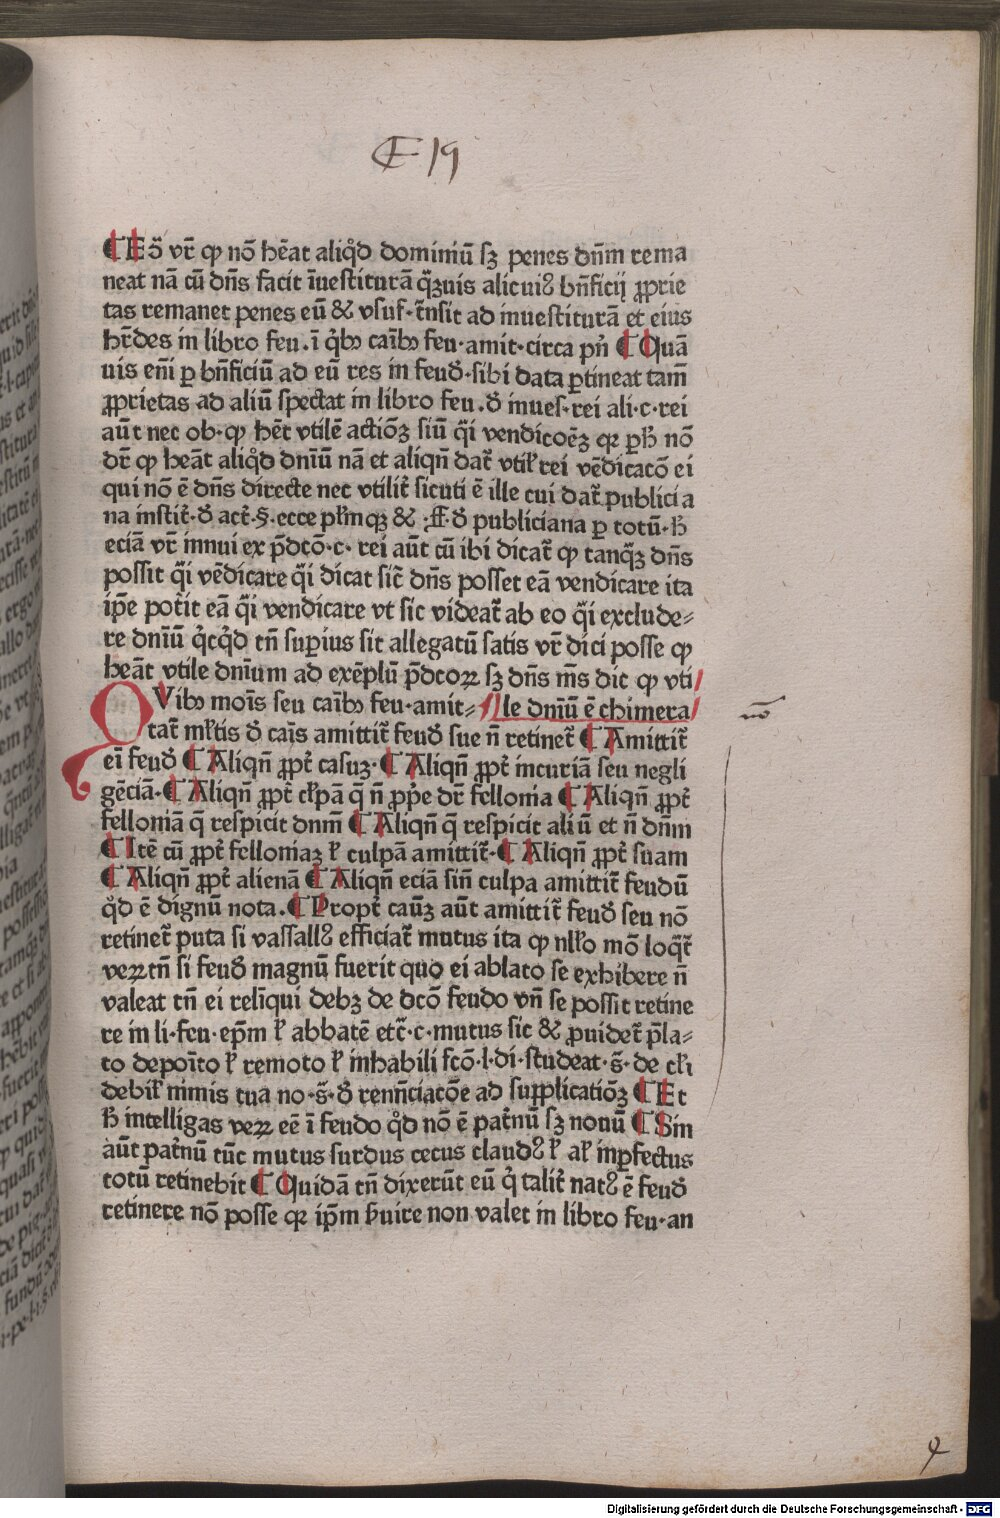 ₵ 19
¶ Eō vr̄ ꝙ nō hēat aliq̊d dominiū sꝫ penes dn̄m rema
neat nā cū dn̄s facit īuestiturā q̄ꝫuis alicuiꝰ bn̄ficij ꝓprie
tas remanet penes eū &c vsuf. t̄nsit ad inuestiturā et eius
hr̄des in libro feu. ī q̇bꝫ caībꝫ feu. amit. circa pn̄ ¶ Quā
uis em̄i ꝑ bn̄ficiū ad eū res in feuđ. sibi data ꝑtineat tam̄
ꝓprietas ad aliū spectat in libro feu. đ inues. rei ali. c. rei
aūt nec ob. ꝙ hēt vtilē actiōꝫ siū q̄i vendicoēꝫ qꝛ ꝑ ħ nō
dr̄ ꝙ heāt aliq̊d dn̄iū nā et aliqn̄ dat̄ vtil̄ rei vēdicacō ei
qui nō ē dn̄s directe nec vtilit̄ sicuti ē ille cui dat̄ publicia
na instit̄. đ act̄. §. ecce pl̄mqꝫ &c ff. đ publiciana ꝑ totū. ħ
eciā vr̄ innui ex p̄dcō. c. rei aūt cū ibi dicat̄ ꝙ tanq̄ꝫ dn̄s
possit q̄i vēdicare q̄i dicat sic̄ dn̄s posset eā vendicare ita
ip̄e pot̄it eā q̄i vendicare vt sic videat̄ ab eo q̄i exclude⸗
re dn̄iū q̇cq̊d tn̄ suꝑius sit allegatū satis vr̄ dici posse ꝙ
heāt vtile dn̄ium ad exēplū p̄dcoꝝ sꝫ dn̄s m̄s dic ꝙ vti
QVibꝫ moīs seu caībꝫ feu. amit⸗ le dn̄iū ē chimera
tat̄ ml̄tis đ caīs amittit̄ feuđ sue n̄ retinet̄ ¶ Amittit̄
eī feuđ ¶ Aliqn̄ ꝓpt̄ casuꝫ. ¶ Aliqn̄ ꝓpt̄ incuriā seu negli
gēciā. ¶ Aliqn̄ ꝓpt̄ cl̄pā q̄ n̄ ꝓp̄e dr̄ fellonia ¶ Aliqn̄ ꝓpt̄
felloniā q̄ respicit dn̄m ¶ Aliqn̄ q̄ respicit aliū et n̄ dn̄m
¶ Itē cū ꝓpt̄ felloniaꝫ ł culpā amittit̄. ¶ Aliqn̄ ꝓpt̄ suam
¶ Aliqn̄ ꝓpt̄ alienā ¶ Aliqn̄ eciā sin̄ culpa amittit̄ feudū
q̊d ē dignū nota. ¶ Propt̄ cauꝫ aūt amittit̄ feuđ seu nō
retinet̄ puta si vassallꝰ efficiat̄ mutus ita ꝙ nl̄lo mō loq̄t̄
veꝝ tn̄ si feuđ magnū fuerit quo ei ablato se exhibere n̄
valeat tn̄ ei reliqui debꝫ de dcō feudo vn̄ se possit retine
re in li. feu. ep̄m ł abbatē etc̄. c. mutus sic &c ꝓuidet̄ p̄la⸗
to depoīto ł remoto ł inhabili fcō. l. di. studeat. s̄. de cl̄i
debil̄ nimis tua no. s̄. đ renn̄ciacōe ad supplicatiōꝫ ¶ Et
ħ intelligas veꝝ eē ī feudo q̊d nō ē pat̄nū sꝫ nouū ¶ Sin
aūt pat̄nū tūc mutus surdus cecus claudꝰ ł al̄ imꝑfectus
totū retinebit ¶ Quidā tn̄ dixerūt eū q̇ talit̄ natꝰ ē feuđ
retinere nō posse qꝛ ip̄m ẜuire non valet in libro feu. an
no
Digitalisierung gefördert durch die Deutsche Forschungsgemeinschaft - DFG